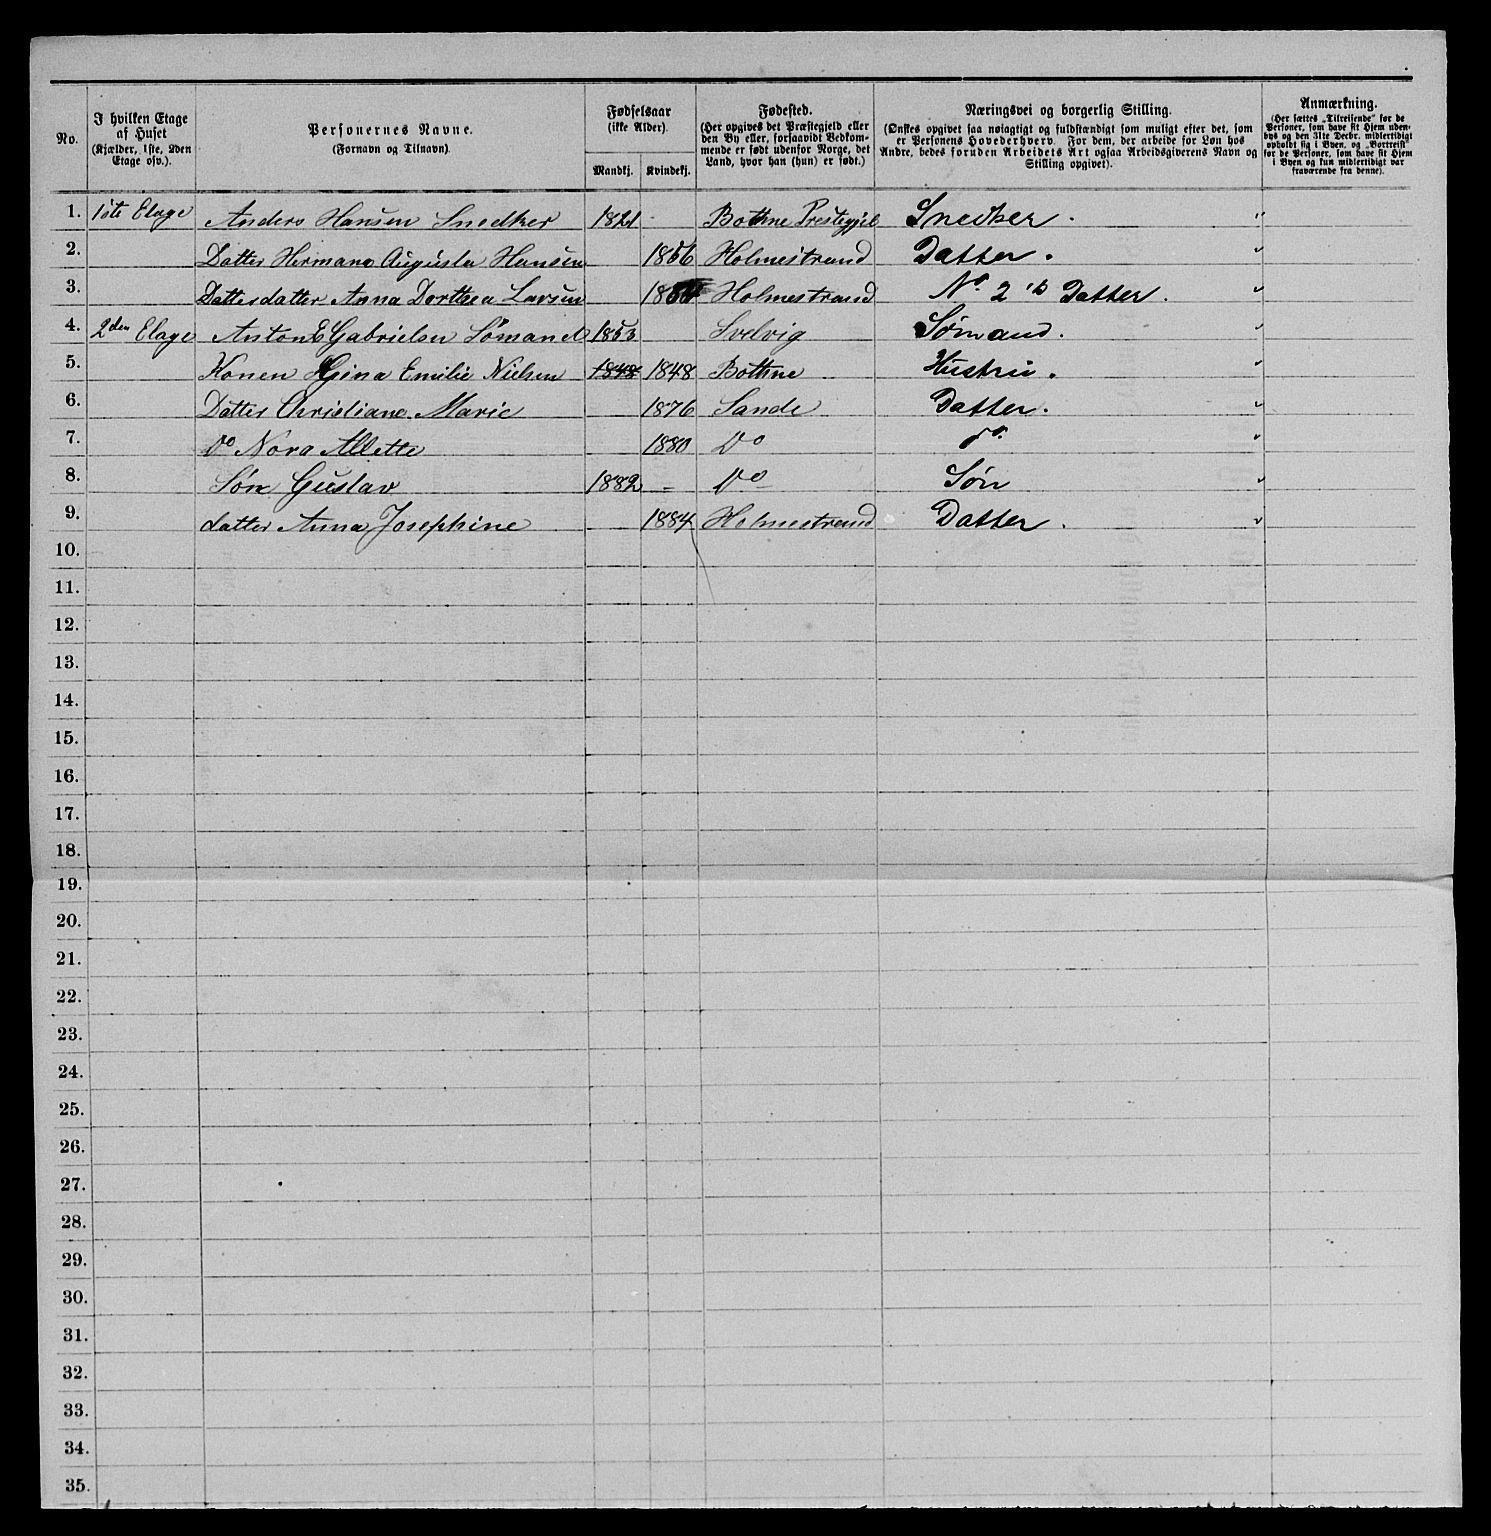 No.
I hvilken Etage af Huset (Kjælder, 1ste, 2den Etage osv.).
Personernes Navne. (Fornavn og Tilnavn).
Fødselsaar (ikke Alder).
Mandkj. Kvindekj.
Fødested. (Her opgives det Præstegjeld eller den By eller, forsaavidt Vedkommende er født udenfor Norge, det Land, hvor han (hun) er født.)
Næringsvei og borgerlig Stilling. (Ønskes opgivet saa nøiagtigt og fuldstændigt som muligt efter det, som er Personens Hovederhverv. For dem, der arbeide for Løn hos Andre, bedes foruden Arbeidets Art ogsaa Arbeidsgiverens Navn og Stilling opgivet).
Anmærkning. (Her sættes „Tilreisende" for de Personer, som have sit Hjem udenbys og den 31te Decbr. midlertidigt opholdt sig i Byen, og „Bortreist" for de Personer, som have sit Hjem i Byen og kun midlertidigt var fraværende fra denne).
1. 1ste Etage Anders Hansen Snedker 1821 - Bothne Prestegjel Snedker. "
2. Datter Hermane Augusta Hansen 1856 Holmestrand Datter. "
3. Datterdatter Anna Dorthea Larsen Holmestrand No 2's Datter. "
4. 2den Etage Anton E Gabrielsen Sømand 1853 Svelvig Sømand. "
5. Konen Gina Emilie Nielsen 1848 1848 Bothne Hustru. "
6. Datter Christiane Marie 1876 Sande Datter. "
7. Do Nora Allette 1880 Do do. "
8. Søn Gustav 1882 - Do Søn "
9. datter Anna Josephine 1884 Holmestrand Datter. "
10.
11.
12.
13.
14.
15.
16.
17.
18.
19.
20.
21.
22.
23.
24.
25.
26.
27.
28.
29.
30.
31.
32.
33.
34.
35.